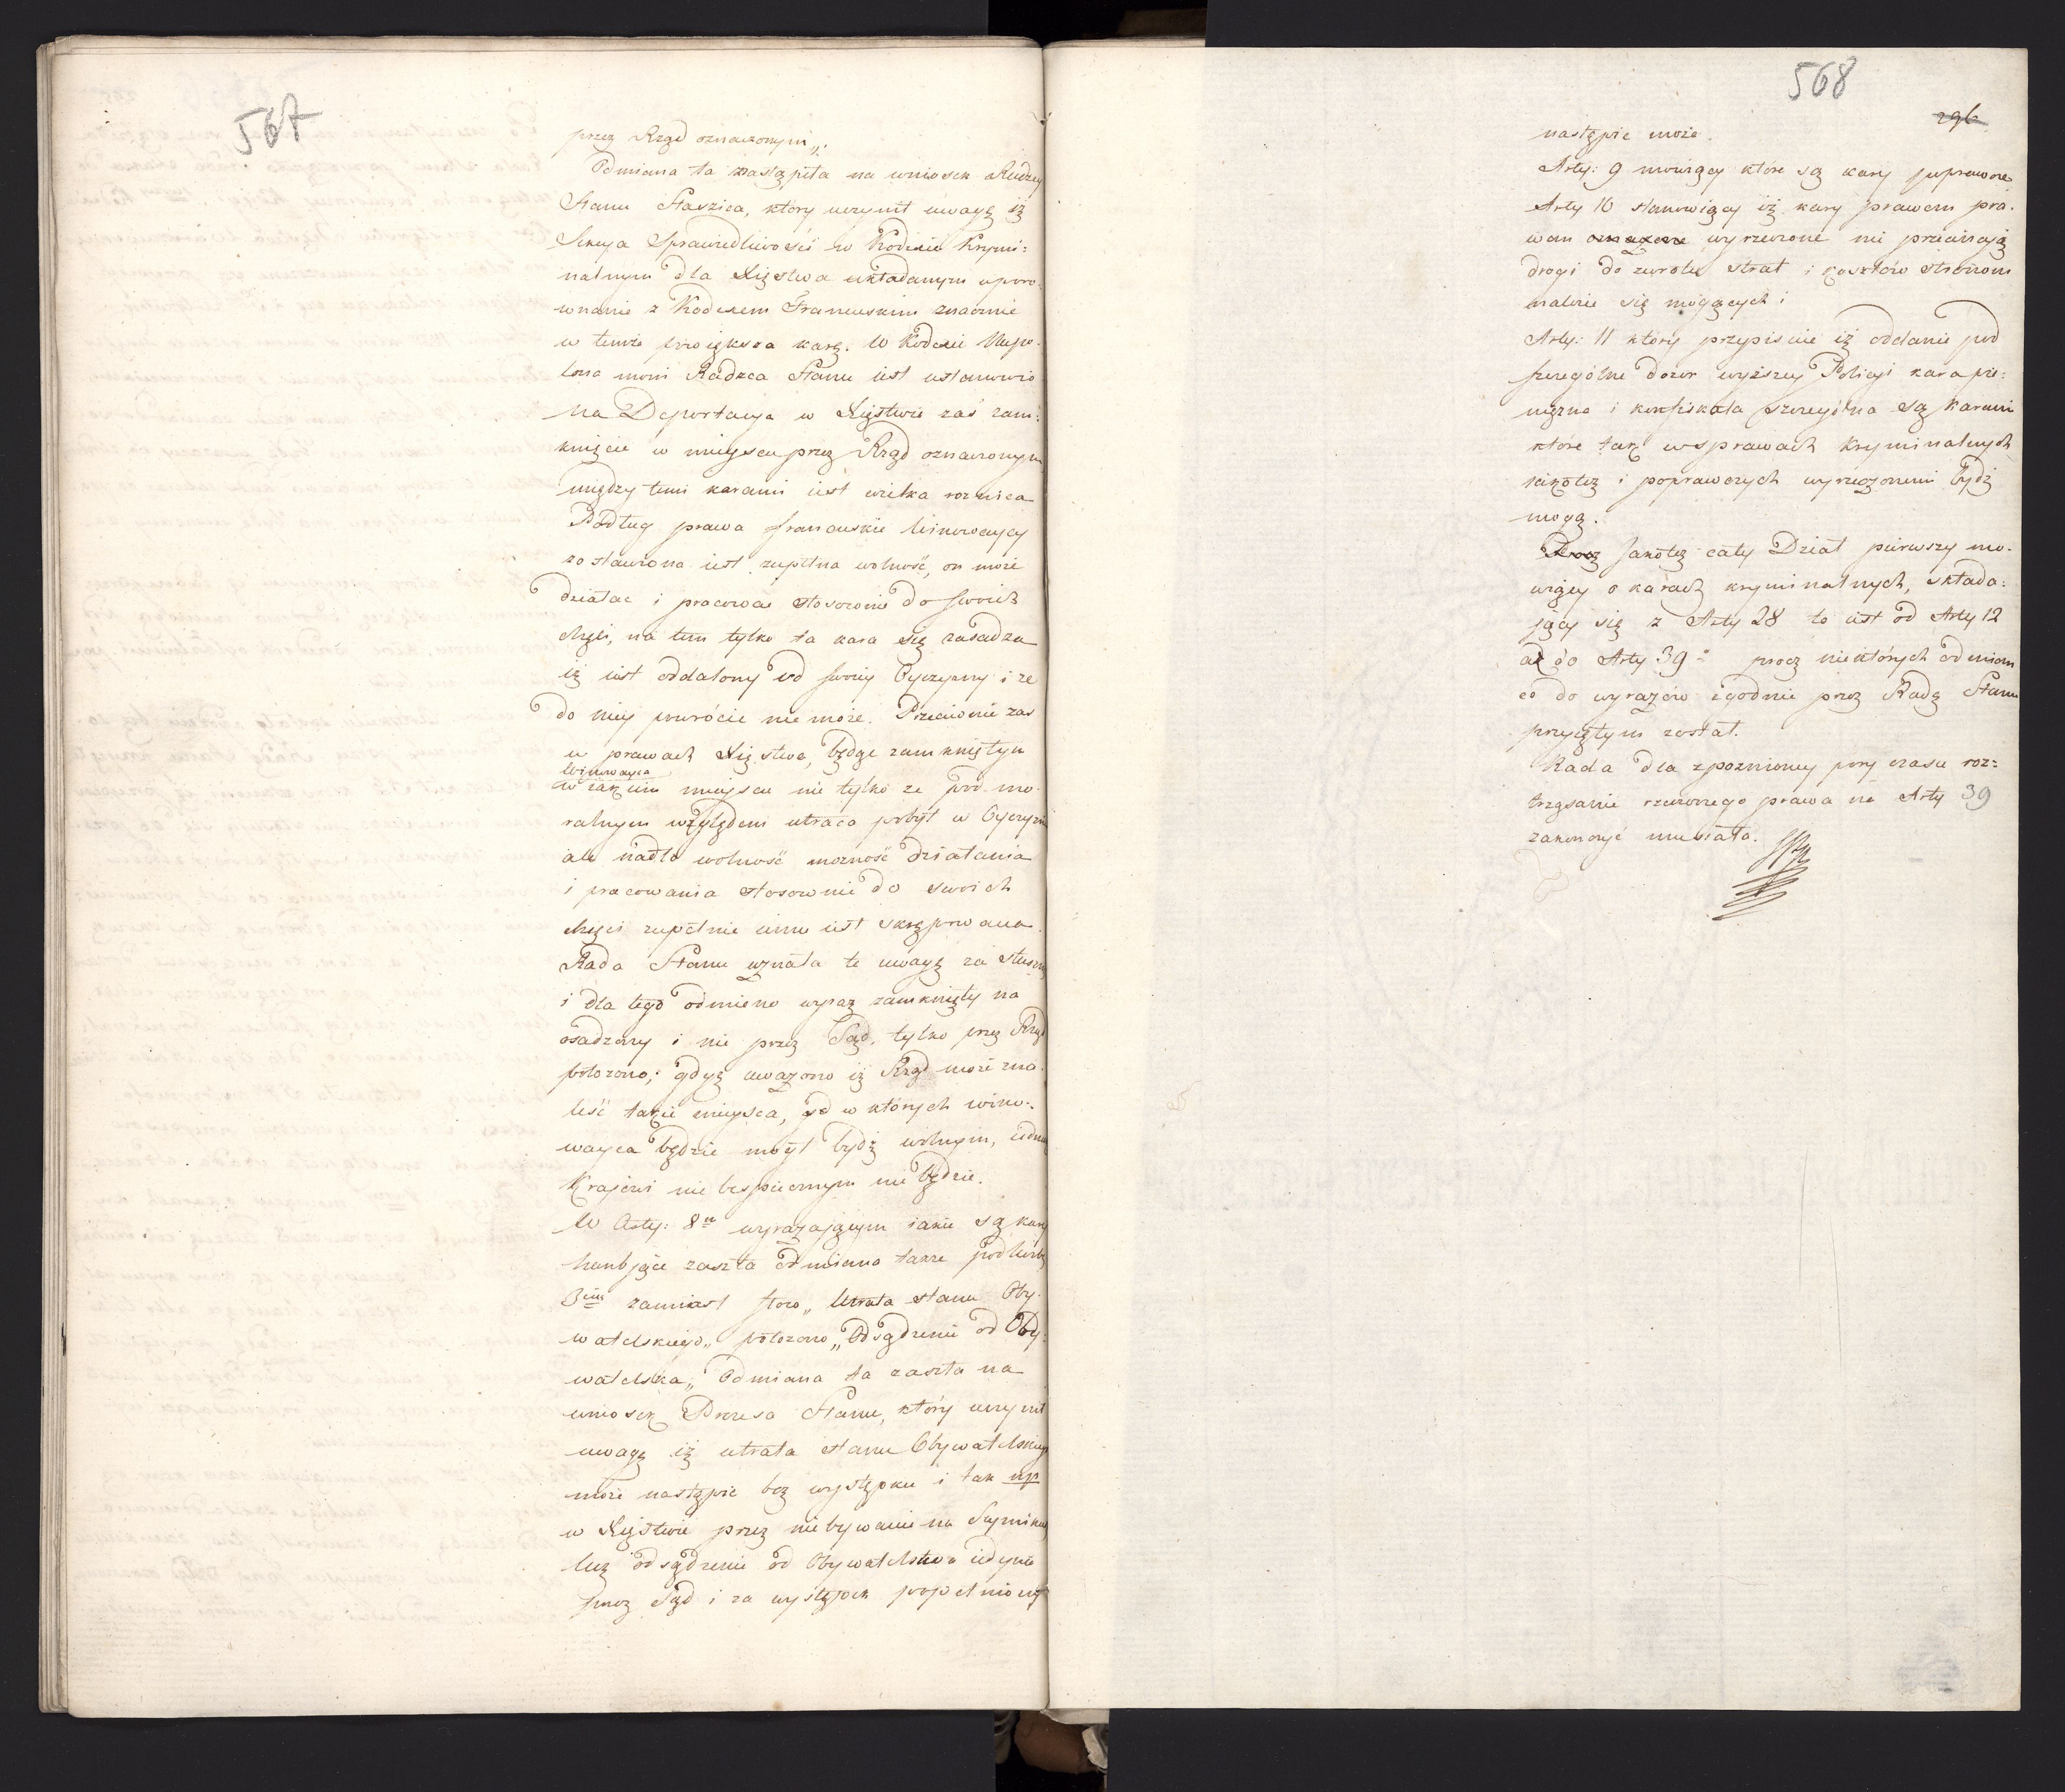 567
przez Rząd oznaczonym„.
Odmiana ta nastąpiła na wniosek Radzcy
Stanu Staszica, który uczynił uwagę iż
Sekcya Sprawiedliwości w Kodexie Krymi:
nalnym dla Xięstwa układanym w poro-
wnanie z Kodexem Francuskim znacznie
w temże powiększa karę. W Kodexie Napo-
leona mowi Radzca Stanu iest ustanowio
na Deportacya w Xięstwie zaś zam:
knięcie w mieyscu przez Rząd oznaczonym
między temi karami iest wielka roznica
Podług prawa francuskie Winowaycy
zostawiona iest zupełna wolność, on może
działac i pracowac stosownie do swoich
chęci, na tem tylko ta kara się zasadza
iż iest oddalony od swoiey Oyczyzny i ze
do niey powrócic nie może. Przeciwnie zas
w prawach Xięstwa, będąc zamkniętym
Winowayca
w iakiem mieyscu nie tylko ze pod mo-
ralnym względem utraca pobyt w Oyczyznie
ale nadto wolność możność działania
i pracowania stosownie do swoich
chęci zupełnie iemu iest skrępowana.
Rada Stanu uznała te uwagę za słuszną
i dla tego odmieno wyraz zamknięty na
osadzony i nie przez Sąd, tylko przez Rząd
położono; gdyż uważono iż Rząd może zna-
leść takie mieysca, gd w których wino:
wayca będzie mógł bydź wolnym, iedna
Krajowi nie bespiecznym nie będzie.
W Arty: 8m wyrażającym iakie są kary
hanbjące zaszła odmiana takze pod liczbą
3cią zamiast słow „Utrata stanu Oby-
watelskiego„ położono „Odsądzenie od Oby:
watelstwa„ Odmiana ta zaszła na
wniosek Prezesa Stanu, który uczynił
uwagę iż utrata stanu Obywatelskiego
może nastąpic bez występku i tak np
w Xięstwie przez niebywanie na Seymikach
lecz odsądzenie od Obywatelstwa iedynie
przez Sąd i za występek popełniony
568
296
nastąpic może.
Arty: 9 mowiący które są kary poprawcze
Arty 10 stanowiący iż kary prawem pra-
wem wyrzeczone nie przecinają
drogi do zwrotu strat i kosztów stronom
nalezic się mogących i
Arty: 11 który przypisuie iż oddanie pod
szczególne dozor wyższey Policyi kara pie:
niężna i konfiskata szczególna są karami
które tak w sprawach kryminalnych
iakoteż i poprawczych wyrzeczonemi bydż
mogą.
Jakoteż cały Dział pierwszy mo-
wiący o karach kryminalnych, składa:
jący się z Arty 28 to iest od Arty 12
aż do Arty 39o procz niektórych odmian
co do wyrazów zgodnie przez Radę Stanu
przyjętym został.
Rada dla zpoznioney pory czasu roz:
trząsanie rzeczonego prawa na Arty 39
zakonczyć musiała.